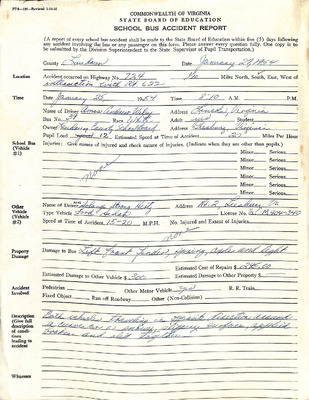 COMMONWEALTH OF VIRGINIA
STATE BOARD OF EDUCATION
SCHOOL BUS ACCIDENT REPORT
(A report of every school bus accident shall be made to the State Board of Education within five (5) days following
any accident involving the bus or any passenger on this form. Please answer every question fully. One copy is to
be submitted by the Division Superintendent to the State Supervisor of Pupil Transportation.)
County Loudoun Date January 27, 1954
Location Accident occurred on Highway No. 734 Miles North, South, East, West of
with Rt. 622
Time January 25, 1954 Time 8:10 A.M. P.M.
School Bus (Vehicle #1)
Name of Driver Address Virginia
Bus No. Race White Adult Student
Owner Loudoun County School Board Address Leesburg, Virginia
Pupil Load 12 Estimated Speed at Time of Accident Miles Per Hour
Injuries: Give names of injured and check nature of injuries. (Indicate when they are other than pupils.)
none
Minor Serious
Minor Serious
Minor Serious
Minor Serious
Minor Serious
Minor Serious
Other Vehicle (Vehicle #2)
Name of Driver Address Rt. 2, Leesburg, Va
Type Vehicle Ford Sedan License No.
Speed at Time of Accident 15-20 M.P.H. No. Injured and Extent of Injuries
none
Property Damage
Damage to Bus Left front fender, spring, axle and light
Estimated Cost of Repairs $
Estimated Damage to Other Vehicle $ 300 Estimated Damage to Other Property $
Accident Involved
Pedestrian Other Motor Vehicle yes R. R. Train
Fixed Object Ran off Roadway Other (Non-Collision)
Description (Give full description of conditions leading to accident)
Both vehicles traveling in opposite direction around
slippery surface, applied
brakes and slid together
Witnesses